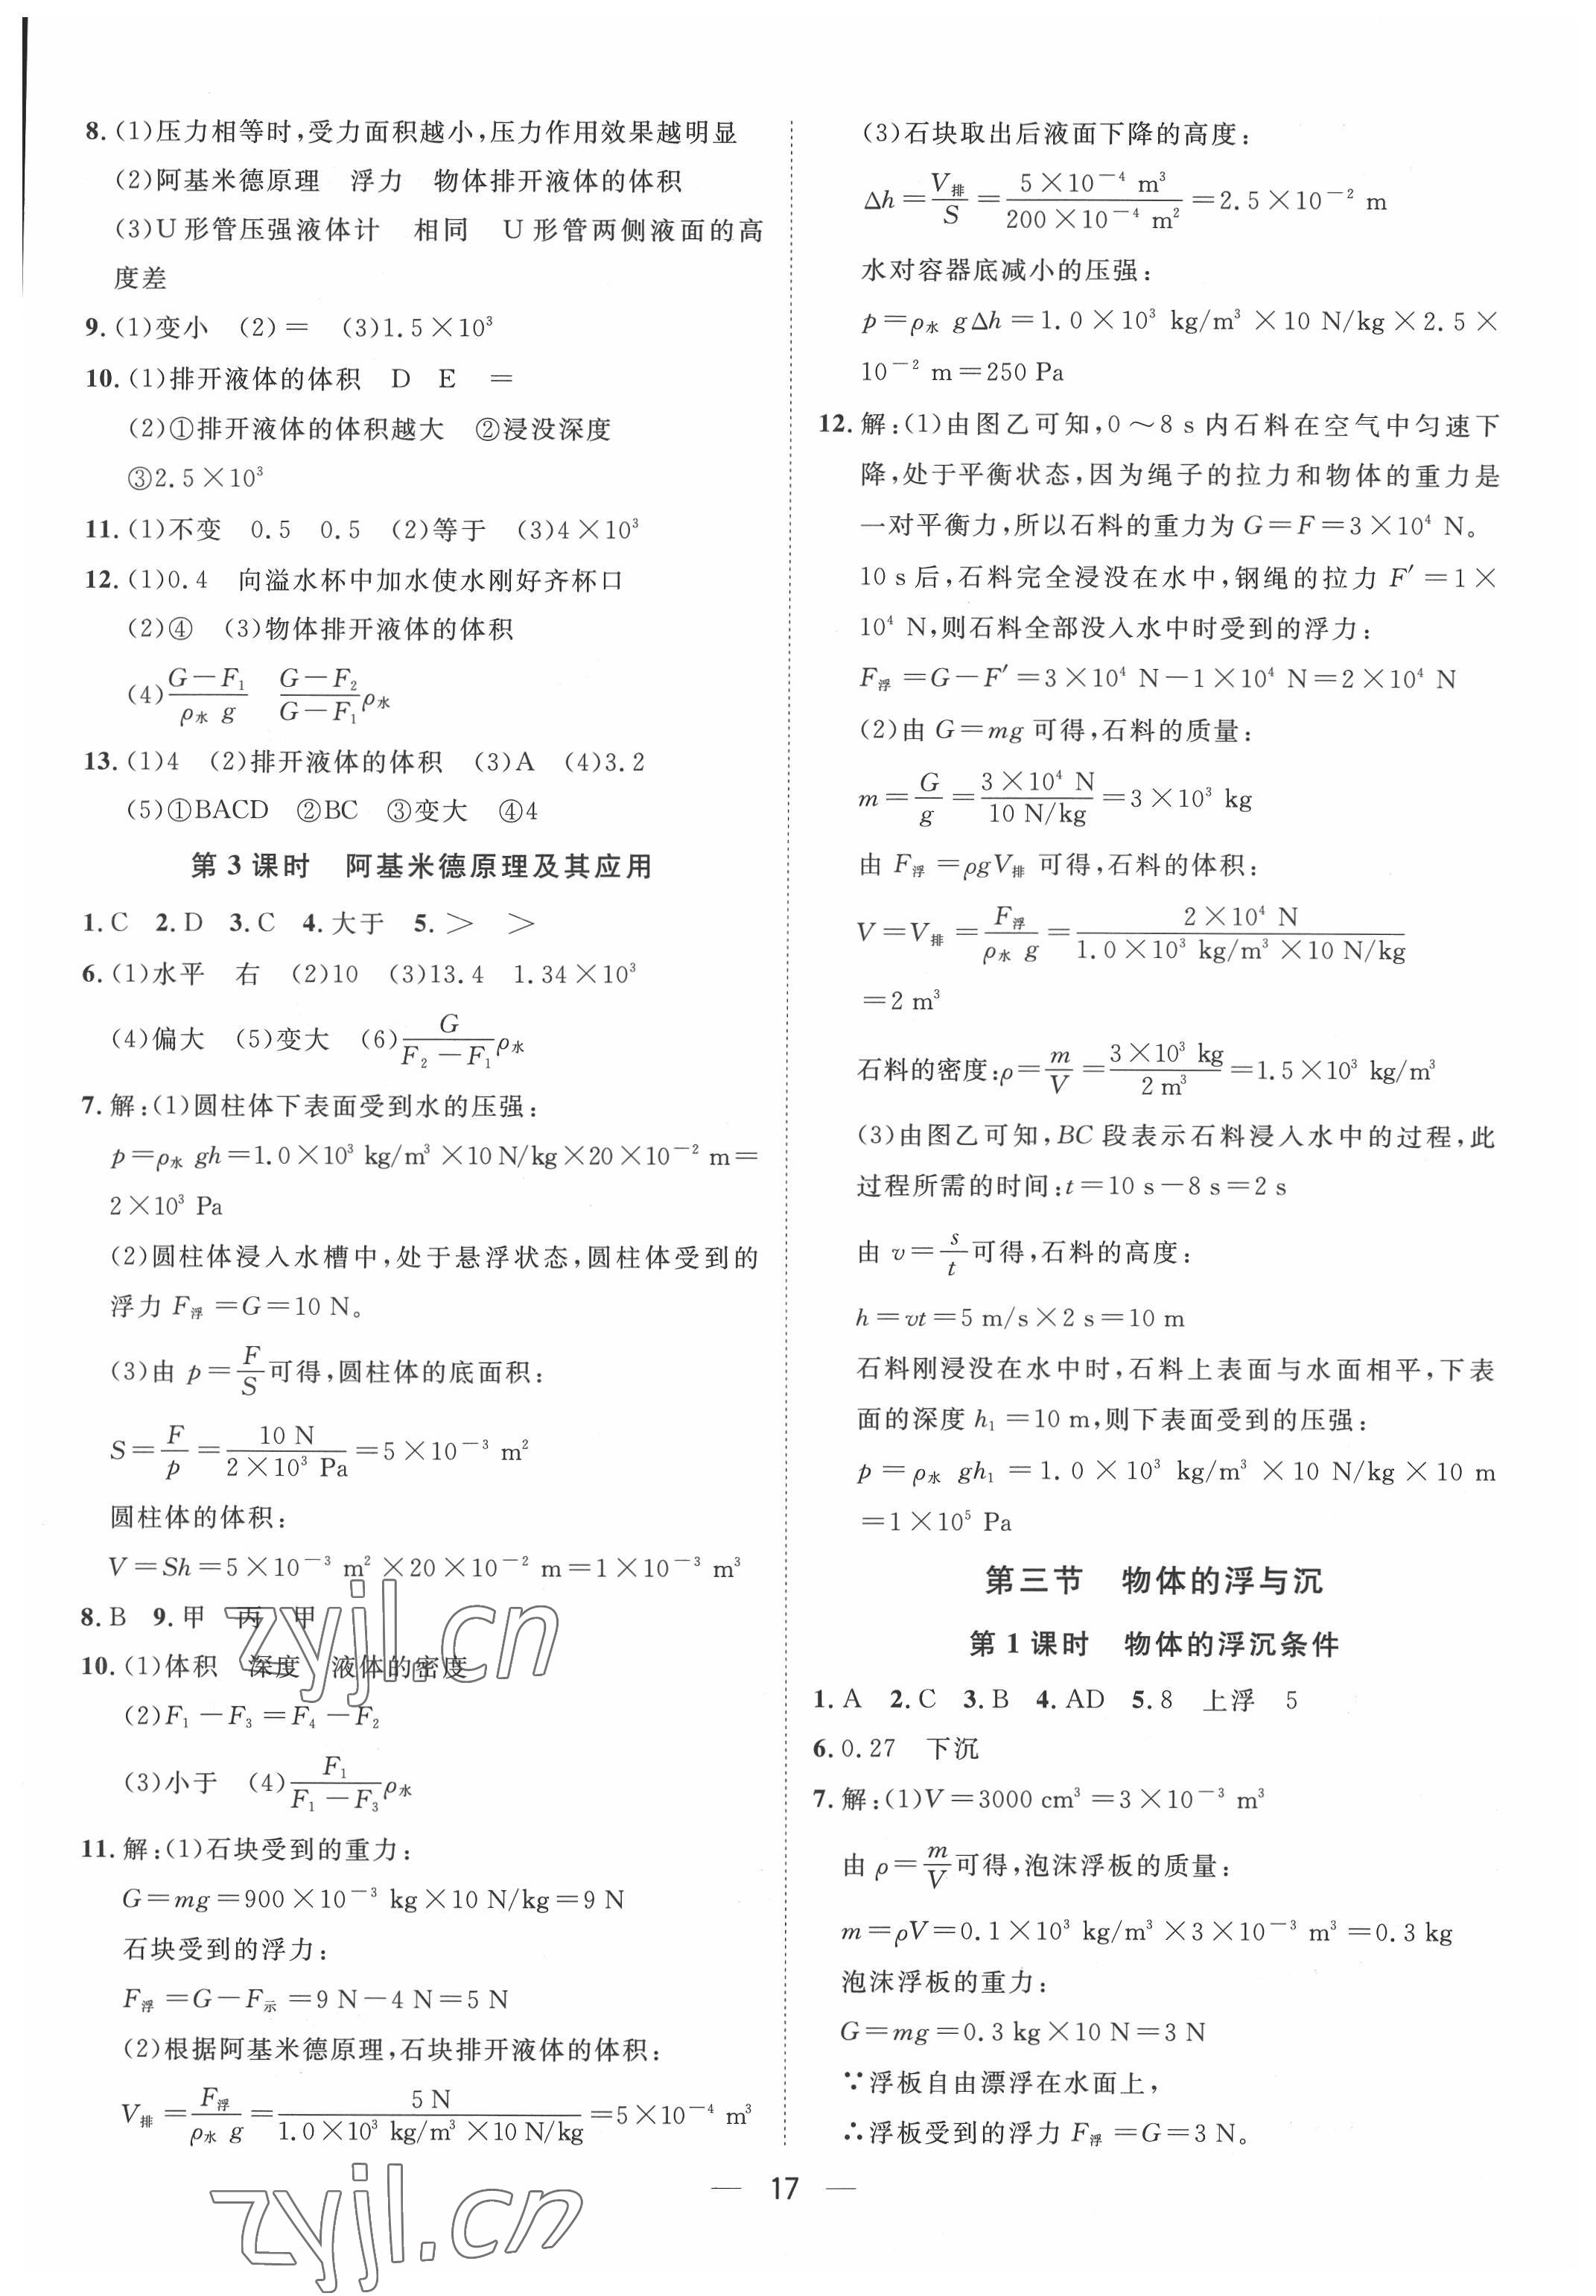 8.(1)压力相等时,受力面积越小,压力作用效果越明显
(2)阿基米德原理 浮力 物体排开液体的体积
(3)U形管压强液体计 相同 U形管两侧液面的高
度差
9.(1)变小 (2)= (3)1.5×10³
10.(1)排开液体的体积 D E =
(2)①排开液体的体积越大 ②浸没深度
③2.5×10³
11.(1)不变 0.5 0.5 (2)等于 (3)4×10³
12.(1)0.4 向溢水杯中加水使水刚好齐杯口
(2)④ (3)物体排开液体的体积
(4)(G-F₁)/(ρ水 g) (G-F₂)/(G-F₁)ρ水
13.(1)4 (2)排开液体的体积 (3)A (4)3.2
(5)①BACD ②BC ③变大 ④4
第3课时 阿基米德原理及其应用
1.C 2.D 3.C 4.大于 5.> >
6.(1)水平 右 (2)10 (3)13.4 1.34×10³
(4)偏大 (5)变大 (6)G/(F₂-F₁)ρ水
7.解:(1)圆柱体下表面受到水的压强:
p=ρ水 gh=1.0×10³ kg/m³×10 N/kg×20×10⁻² m=
2×10³ Pa
(2)圆柱体浸入水槽中,处于悬浮状态,圆柱体受到的
浮力F浮=G=10 N。
(3)由p=F/S可得,圆柱体的底面积:
S=F/p=10 N/(2×10³ Pa)=5×10⁻³ m²
圆柱体的体积:
V=Sh=5×10⁻³ m²×20×10⁻² m=1×10⁻³ m³
8.B 9.甲 丙 甲
10.(1)体积 深度 液体的密度
(2)F₁-F₃=F₄-F₂
(3)小于 (4)F₁/(F₁-F₃)ρ水
11.解:(1)石块受到的重力:
G=mg=900×10⁻³ kg×10 N/kg=9 N
石块受到的浮力:
F浮=G-F示=9 N-4 N=5 N
(2)根据阿基米德原理,石块排开液体的体积:
V排=F浮/(ρ水 g)=5 N/(1.0×10³ kg/m³×10 N/kg)=5×10⁻⁴ m³
(3)石块取出后液面下降的高度:
Δh=V排/S=(5×10⁻⁴ m³)/(200×10⁻⁴ m²)=2.5×10⁻² m
水对容器底减小的压强:
p=ρ水 gΔh=1.0×10³ kg/m³×10 N/kg×2.5×
10⁻² m=250 Pa
12.解:(1)由图乙可知,0~8 s内石料在空气中匀速下
降,处于平衡状态,因为绳子的拉力和物体的重力是
一对平衡力,所以石料的重力为G=F=3×10⁴ N。
10 s后,石料完全浸没在水中,钢绳的拉力F′=1×
10⁴ N,则石料全部没入水中时受到的浮力:
F浮=G-F′=3×10⁴ N-1×10⁴ N=2×10⁴ N
(2)由G=mg可得,石料的质量:
m=G/g=(3×10⁴ N)/(10 N/kg)=3×10³ kg
由F浮=ρgV排可得,石料的体积:
V=V排=F浮/(ρ水 g)=(2×10⁴ N)/(1.0×10³ kg/m³×10 N/kg)
=2 m³
石料的密度:ρ=m/V=(3×10³ kg)/(2 m³)=1.5×10³ kg/m³
(3)由图乙可知,BC段表示石料浸入水中的过程,此
过程所需的时间:t=10 s-8 s=2 s
由v=s/t可得,石料的高度:
h=vt=5 m/s×2 s=10 m
石料刚浸没在水中时,石料上表面与水面相平,下表
面的深度h₁=10 m,则下表面受到的压强:
p=ρ水 gh₁=1.0×10³ kg/m³×10 N/kg×10 m
=1×10⁵ Pa
第三节 物体的浮与沉
第1课时 物体的浮沉条件
1.A 2.C 3.B 4.AD 5.8 上浮 5
6.0.27 下沉
7.解:(1)V=3000 cm³=3×10⁻³ m³
由ρ=m/V可得,泡沫浮板的质量:
m=ρV=0.1×10³ kg/m³×3×10⁻³ m³=0.3 kg
泡沫浮板的重力:
G=mg=0.3 kg×10 N=3 N
∵浮板自由漂浮在水面上,
∴浮板受到的浮力F浮=G=3 N。
— 17 —
zyjl.cn
zyjl.cn